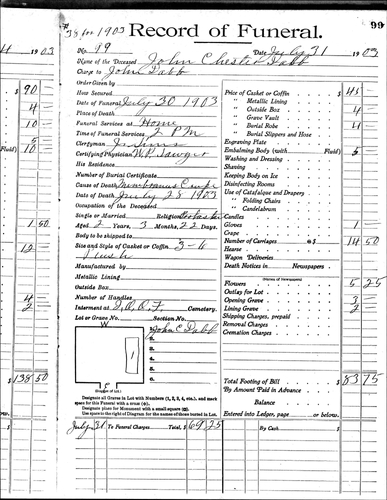 # 38 for 1903 Record of Funeral. 99
No. 99 Date July 31 1903
Name of the Deceased John Chester Dabb
Charge to John Dabb
Order Given by
How Secured
Date of Funeral July 30 1903
Place of Death
Funeral Services at Home
Time of Funeral Services 2 PM
Clergyman
Certifying Physician W.P. Sawyer
His Residence
Number of Burial Certificate
Cause of Death Membranous Croup
Date of Death July 28 1903
Occupation of the Deceased
Single or Married Religion
Aged 2 Years, 3 Months, 22 Days.
Body to be shipped to
Size and Style of Casket or Coffin, 3-6
Plush
Manufactured by
Metallic Lining
Outside Box
Number of Handles
Interment at I.O.O.F. Cemetery.
Lot or Grave No. Section No.
W
1. John C Dabb
2.
3.
4.
5.
6.
1
E
(Diagram of Lot.)
Designate all Graves in Lot with Numbers (1, 2, 3, 4, etc.), and mark space for this Funeral with a cross (+).
Designate place for Monument with a small square (□).
Use space to the right of Diagram for the names of those buried in Lot.
July 31 To Funeral Charges Total, $ 69 25
Price of Casket or Coffin $45
" Metallic Lining
" Outside Box 4
" Grave Vault
" Burial Robe 4
" Burial Slippers and Hose
Engraving Plate
Embalming Body (with Fluid) 5
Washing and Dressing
Shaving
Keeping Body on Ice
Disinfecting Rooms
Use of Catafalque and Drapery
" Folding Chairs
" Candelabrum
Candles
Gloves 1
Crape
Number of Carriages @$ 14 50
Hearse
Wagon Deliveries
Death Notices in Newspapers
(Names of Newspapers)
Flowers 5 25
Outlay for Lot
Opening Grave 3
Lining Grave 2
Shipping Charges, prepaid
Removal Charges
Cremation Charges
Total Footing of Bill $83 75
By Amount Paid in Advance
Balance
Entered into Ledger, page or below.
By Cash $
1903
$ 90
4
10
5
Fluid) 10
1 50
12
4
2
$138 50